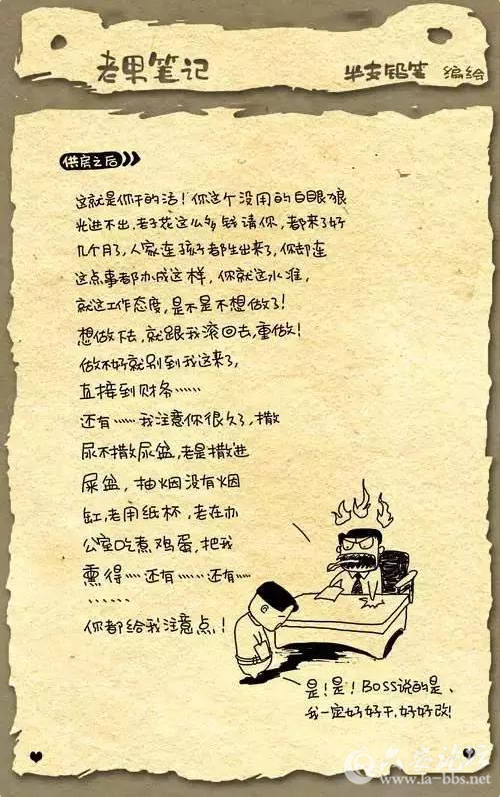 老男笔记
半支铅笔 编绘
供房之后
这就是你干的活！你这个没用的白眼狼
光进不出，老子花这么多钱请你，都来了好
几个月了，人家连孩子都生出来了，你却连
这点事都办成这样，你就这水准，
就这工作态度，是不是不想做了！
想做下去，就跟我滚回去，重做！
做不好就别到我这来了，
直接到财务……
还有……我注意你很久了，撒
尿不撒尿盆，老是撒进
屎盆，抽烟没有烟
缸，老用纸杯，老在办
公室吃煮鸡蛋，把我
熏得……还有……还有……
……
你都给我注意点！
是！是！BOSS说的是、
我一定好好干，好好改！
www.la-bbs.net